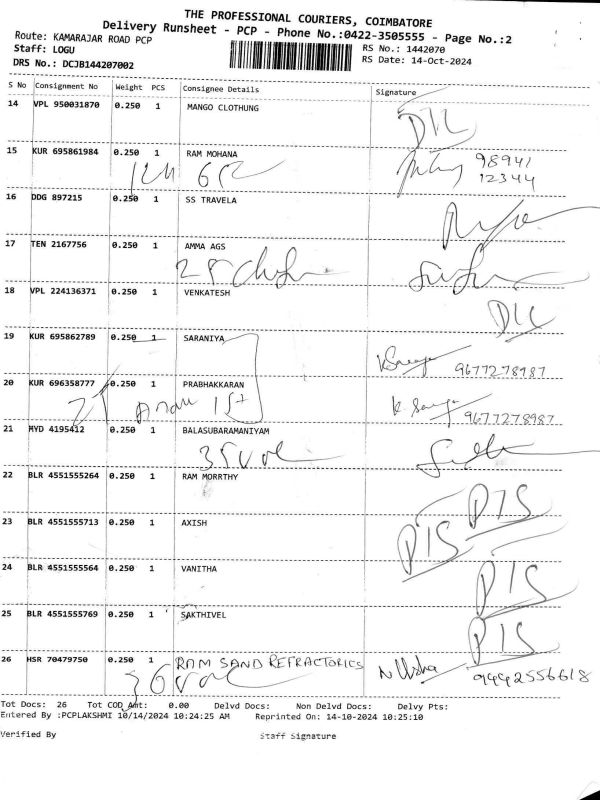 THE PROFESSIONAL COURIERS, COIMBATORE
Delivery Runsheet - PCP - Phone No.:0422-3505555 - Page No.:2
Route: KAMARAJAR ROAD PCP
RS No.: 1442070
Staff: LOGU
RS Date: 14-Oct-2024
DRS No.: DCJB144207002
S No Consignment No Weight PCS Consignee Details Signature
14 VPL 950031870 0.250 1 MANGO CLOTHUNG
15 KUR 695861984 0.250 1 RAM MOHANA 98941
12344
16 DDG 897215 0.250 1 SS TRAVELA
17 TEN 2167756 0.250 1 AMMA AGS
18 VPL 224136371 0.250 1 VENKATESH
19 KUR 695862789 0.250 1 SARANIYA 9677278987
20 KUR 696358777 0.250 1 PRABHAKKARAN
9677278987
21 MYD 4195412 0.250 1 BALASUBARAMANIYAM
22 BLR 4551555264 0.250 1 RAM MORRTHY
23 BLR 4551555713 0.250 1 AXISH
24 BLR 4551555564 0.250 1 VANITHA
25 BLR 4551555769 0.250 1 SAKTHIVEL
26 HSR 70479750 0.250 1 RAM SAND REFRACTORIES N Usha
9442556618
Tot Docs: 26 Tot COD Amt: 0.00 Delvd Docs: Non Delvd Docs: Delvy Pts:
Entered By :PCPLAKSHMI 10/14/2024 10:24:25 AM Reprinted On: 14-10-2024 10:25:10
Verified By Staff Signature